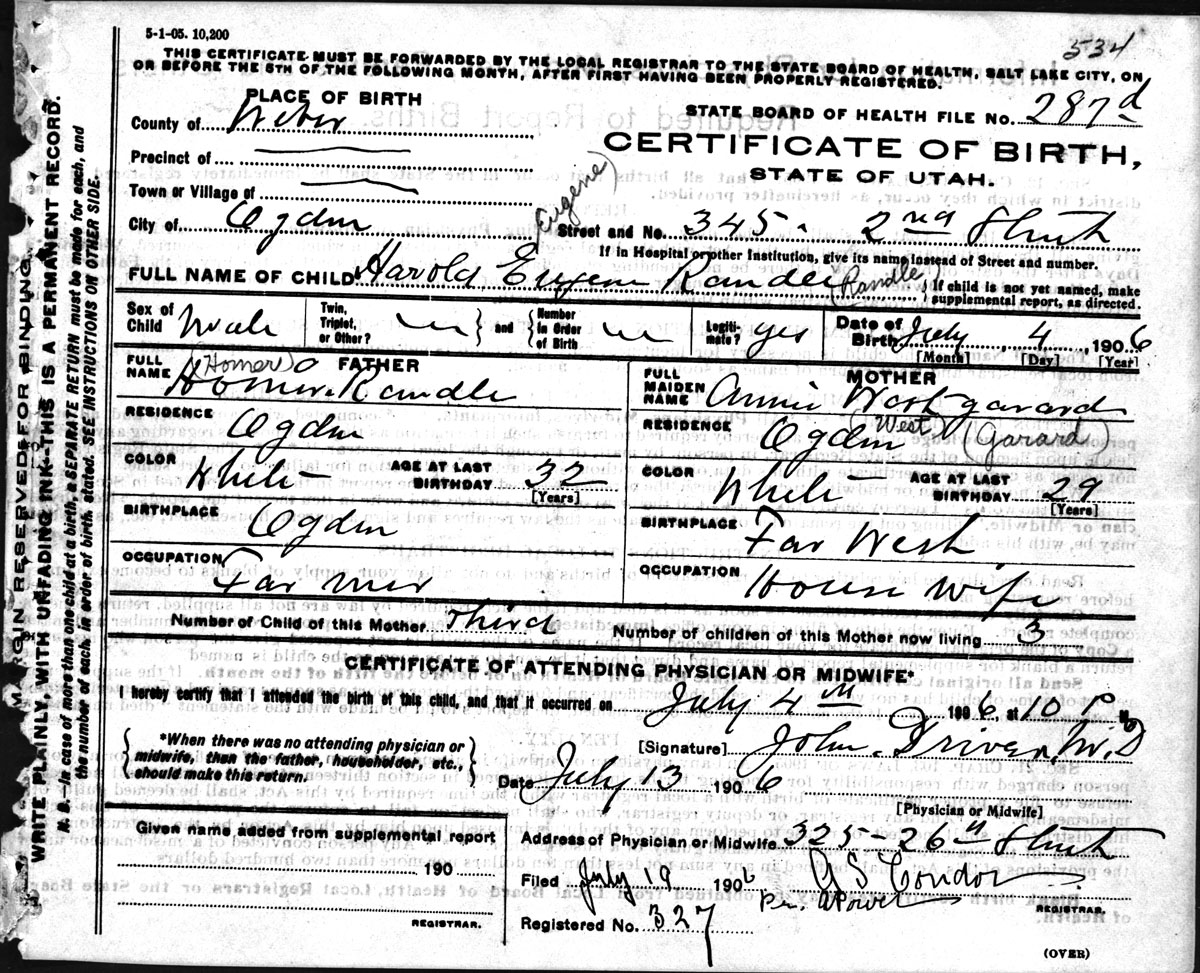 5-1-05. 10,200
534
THIS CERTIFICATE MUST BE FORWARDED BY THE LOCAL REGISTRAR TO THE STATE BOARD OF HEALTH, SALT LAKE CITY, ON
OR BEFORE THE 5TH OF THE FOLLOWING MONTH, AFTER FIRST HAVING BEEN PROPERLY REGISTERED.
PLACE OF BIRTH
STATE BOARD OF HEALTH FILE NO. 287d
County of Weber
CERTIFICATE OF BIRTH,
STATE OF UTAH.
Precinct of
Town or Village of
(Eugene)
City of Ogden Street and No. 345. 2nd Street
If in Hospital or other Institution, give its name instead of Street and number.
FULL NAME OF CHILD Harold Eugene Randle (Randle) If child is not yet named, make
supplemental report, as directed.
Sex of Child Male Twin, Triplet, or Other? and Number in Order of Birth Legitimate? yes Date of Birth July 4 1906
[Month] [Day] [Year]
FATHER
FULL NAME (Homer) Homer Randle
RESIDENCE Ogden
COLOR White AGE AT LAST BIRTHDAY 32
[Years]
BIRTHPLACE Ogden
OCCUPATION Farmer
MOTHER
FULL MAIDEN NAME Annie West garard
RESIDENCE Ogden (West) (Garard)
COLOR White AGE AT LAST BIRTHDAY 29
[Years]
BIRTHPLACE Far West
OCCUPATION House wife
Number of Child of this Mother Third Number of children of this Mother now living 3
CERTIFICATE OF ATTENDING PHYSICIAN OR MIDWIFE*
I hereby certify that I attended the birth of this child, and that it occurred on July 4th 1906 at 10 P M
*When there was no attending physician or
midwife, then the father, householder, etc.,
should make this return.
[Signature] John Driver, M.D
Date July 13 1906
[Physician or Midwife]
Given name added from supplemental report
190
REGISTRAR.
Address of Physician or Midwife 325-26th Street
Filed July 19 1906 Condor
Per.
REGISTRAR.
Registered No. 327
(OVER)
MARGIN RESERVED FOR BINDING.
WRITE PLAINLY WITH UNFADING INK--THIS IS A PERMANENT RECORD.
N. B.--In case of more than one child at a birth, a SEPARATE RETURN must be made for each, and
the number of each, in order of birth, stated. SEE INSTRUCTIONS ON OTHER SIDE.